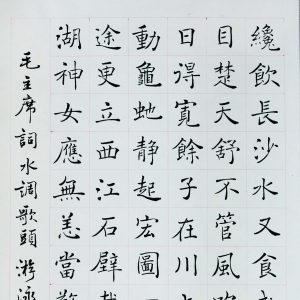 纔飲長沙水又食
目楚天舒不管風
日得寬餘子在川
動龜虵靜起宏圖
途更立西江石壁
湖神女應無恙當
毛主席詞水調歌頭 游泳